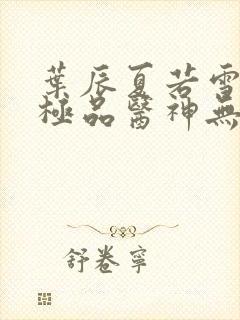 葉辰夏若雪
極品醫神無
舒卷寧